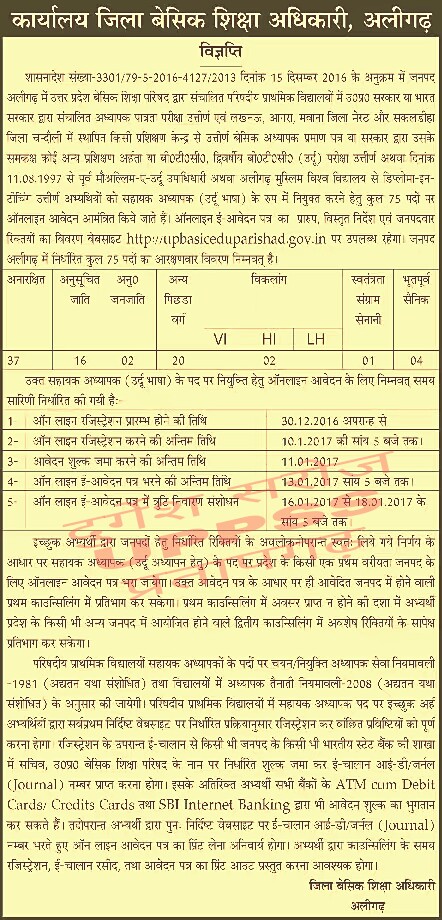 कार्यालय जिला बेसिक शिक्षा अधिकारी, अलीगढ़
विज्ञप्ति
शासनादेश संख्या-3301/79-5-2016-4127/2013 दिनांक 15 दिसम्बर 2016 के अनुक्रम में जनपद
अलीगढ़ में उत्तर प्रदेश बेसिक शिक्षा परिषद द्वारा संचालित परिषदीय प्राथमिक विद्यालयों में उ0प्र0 सरकार या भारत
सरकार द्वारा संचालित अध्यापक पात्रता परीक्षा उत्तीर्ण एवं लखनऊ, आगरा, मवाना जिला मेरठ और सकलडीहा
जिला चन्दौली में स्थापित किसी प्रशिक्षण केन्द्र से उत्तीर्ण बेसिक अध्यापक प्रमाण पत्र या सरकार द्वारा उसके
समकक्ष कोई अन्य प्रशिक्षण अर्हता या बी0टी0सी0, द्विवर्षीय बी0टी0सी0 (उर्दू) परीक्षा उत्तीर्ण अथवा दिनांक
11.08.1997 से पूर्व मौअल्लिम-ए-उर्दू उपाधिधारी अथवा अलीगढ़ मुस्लिम विश्व विद्यालय से डिप्लोमा-इन-
टीचिंग उत्तीर्ण अभ्यर्थियों को सहायक अध्यापक (उर्दू भाषा) के रुप में नियुक्त करने हेतु कुल 75 पदों पर
ऑनलाइन आवेदन आमंत्रित किये जाते है। ऑनलाइन ई आवेदन पत्र का प्रारुप, विस्तृत निर्देश एवं जनपदवार
रिक्तयों का विवरण वेबसाइट http://upbasiceduparishad.gov.in पर उपलब्ध रहेगा। जनपद
अलीगढ़ में निर्धारित कुल 75 पदों का आरक्षणवार विवरण निम्नवत् है।
अनारक्षित अनुसूचित जाति अनु0 जनजाति अन्य पिछडा वर्ग विकलांग स्वतंत्रता संग्राम सेनानी भूतपूर्व सैनिक
VI HI LH
37 16 02 20 02 01 04
उक्त सहायक अध्यापक (उर्दू भाषा) के पद पर नियुक्ति हेतु ऑनलाइन आवेदन के लिए निम्नवत् समय
सारिणी निर्धारित की गयी है:-
1 ऑन लाइन रजिस्ट्रेशन प्रारम्भ होने की तिथि 30.12.2016 अपरान्ह से
2- ऑन लाइन रजिस्ट्रेशन करने की अन्तिम तिथि 10.1.2017 की सांय 5 बजे तक।
3- आवेदन शुल्क जमा करने की अन्तिम तिथि 11.01.2017
4- ऑन लाइन ई-आवेदन पत्र भरने की अन्तिम तिथि 13.01.2017 सांय 5 बजे तक।
5- ऑन लाइन ई-आवेदन पत्र में त्रुटि निवारण संशोधन 16.01.2017 से 18.01.2017 के
सांय 5 बजे तक।
इच्छुक अभ्यर्थी द्वारा जनपदों हेतु निर्धारित रिक्तियों के अवलोकनोपरान्त स्वतः लिये गये निर्णय के
आधार पर सहायक अध्यापक (उर्दू अध्यापन हेतु) के पद पर प्रदेश के किसी एक प्रथम वरीयता जनपद के
लिए ऑनलाइन आवेदन पत्र भरा जायेगा। उक्त आवेदन पत्र के आधार पर ही आवेदित जनपद में होने वाली
प्रथम काउन्सिलिंग में प्रतिभाग कर सकेगा। प्रथम काउन्सिलिंग में अवसर प्राप्त न होने की दशा में अभ्यर्थी
प्रदेश के किसी भी अन्य जनपद में आयोजित होने वाले द्वितीय काउन्सिलिंग में अवशेष रिक्तियों के सापेक्ष
प्रतिभाग कर सकेगा।
परिषदीय प्राथमिक विद्यालयों सहायक अध्यापकों के पदों पर चयन/नियुक्ति अध्यापक सेवा नियमावली
-1981 (अद्यतन यथा संशोधित) तथा विद्यालयों में अध्यापक तैनाती नियमावली-2008 (अद्यतन यथा
संशोधित) के अनुसार की जायेगी। परिषदीय प्राथमिक विद्यालयों में सहायक अध्यापक पद पर इच्छुक अर्ह
अभ्यर्थियों द्वारा सर्वप्रथम निर्दिष्ट वेबसाइट पर निर्धारित प्रक्रियानुसार रजिस्ट्रेशन कर वांछित प्रविष्टियों को पूर्ण
करना होगा। रजिस्ट्रेशन के उपरान्त ई-चालान से किसी भी जनपद के किसी भी भारतीय स्टेट बैंक की शाखा
में सचिव, उ0प्र0 बेसिक शिक्षा परिषद के नाम पर निर्धारित शुल्क जमा कर ई-चालान आई-डी/जर्नल
(Journal) नम्बर प्राप्त करना होगा। इसके अतिरिक्त अभ्यर्थी सभी बैंकों के ATM cum Debit
Cards/ Credits Cards तथा SBI Internet Banking द्वारा भी आवेदन शुल्क का भुगतान
कर सकते हैं। तदोपरान्त अभ्यर्थी द्वारा पुनः निर्दिष्ट वेबसाइट पर ई-चालान आई-डी/जर्नल (Journal)
नम्बर भरते हुए ऑन लाइन आवेदन पत्र का प्रिंट लेना अनिवार्य होगा। अभ्यर्थी द्वारा काउन्सिलिंग के समय
रजिस्ट्रेशन, ई-चालान रसीद, तथा आवेदन पत्र का प्रिंट आउट प्रस्तुत करना आवश्यक होगा।
जिला बेसिक शिक्षा अधिकारी
अलीगढ़